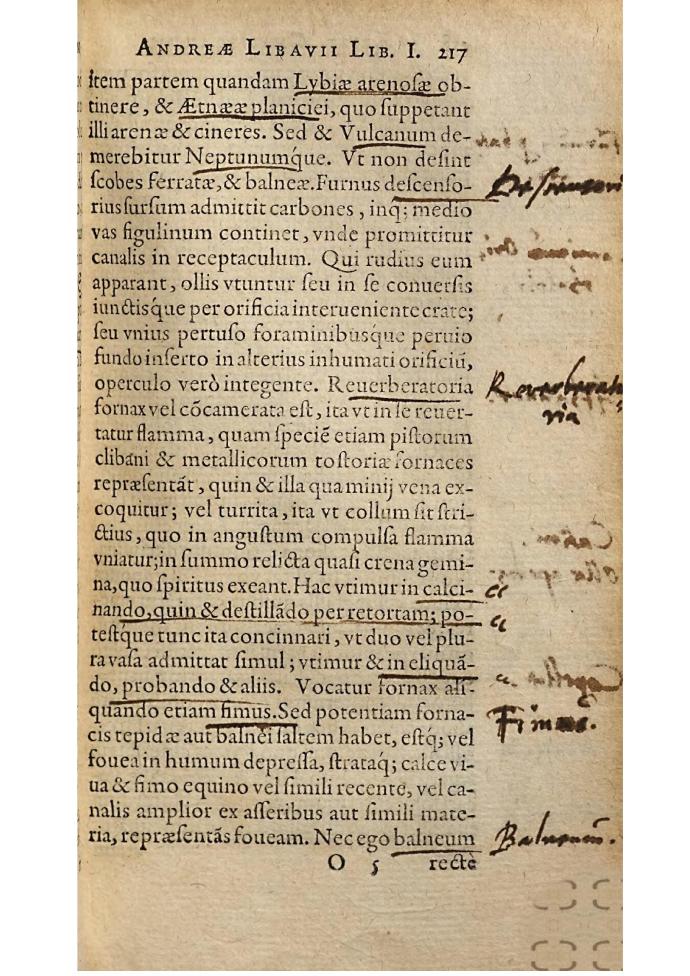 ANDREÆ LIBAVII LIB. I. 217
item partem quandam Lybiæ arenoſæ ob-
tinere, & Ætnææ planiciei, quo ſuppetant
illi arenæ & cineres. Sed & Vulcanum de-
merebitur Neptunumq́ue. Vt non deſint
ſcobes ferratæ, & balneæ. Furnus deſcenſo-
rius ſurſum admittit carbones, inq; medio
vas figulinum continet, vnde promittitur
canalis in receptaculum. Qui rudius eum
apparant, ollis vtuntur ſeu in ſe conuerſis
iunctisq́ue per orificia interueniente crate;
ſeu vnius pertuſo foraminibusq́ue peruio
fundo inſerto in alterius inhumati orificiū,
operculo verò integente. Reuerberatoria
fornax vel cõcamerata eſt, ita vt in ſe reuer-
tatur flamma, quam ſpeciẽ etiam piſtorum
clibani & metallicorum toſtoriæ fornaces
repræſentãt, quin & illa qua minij vena ex-
coquitur; vel turrita, ita vt collum ſit ſtri-
ctius, quo in anguſtum compulſa flamma
vniatur; in ſummo relicta quaſi crena gemi-
na, quo ſpiritus exeant. Hac vtimur in calci-
nando, quin & deſtillãdo per retortam; po-
teſtq́ue tunc ita concinnari, vt duo vel plu-
ra vaſa admittat ſimul; vtimur & in eliquã-
do, probando & aliis. Vocatur fornax ali-
quando etiam fimus. Sed potentiam forna-
cis tepidæ aut balnei ſaltem habet, eſtq́; vel
fouea in humum depreſſa, ſtrataq́; calce vi-
ua & fimo equino vel ſimili recente, vel ca-
nalis amplior ex aſſeribus aut ſimili mate-
ria, repræſentãs foueam. Nec ego balneum
O 5 rectè
Reverberato
ria
Fimus.
Balneum.